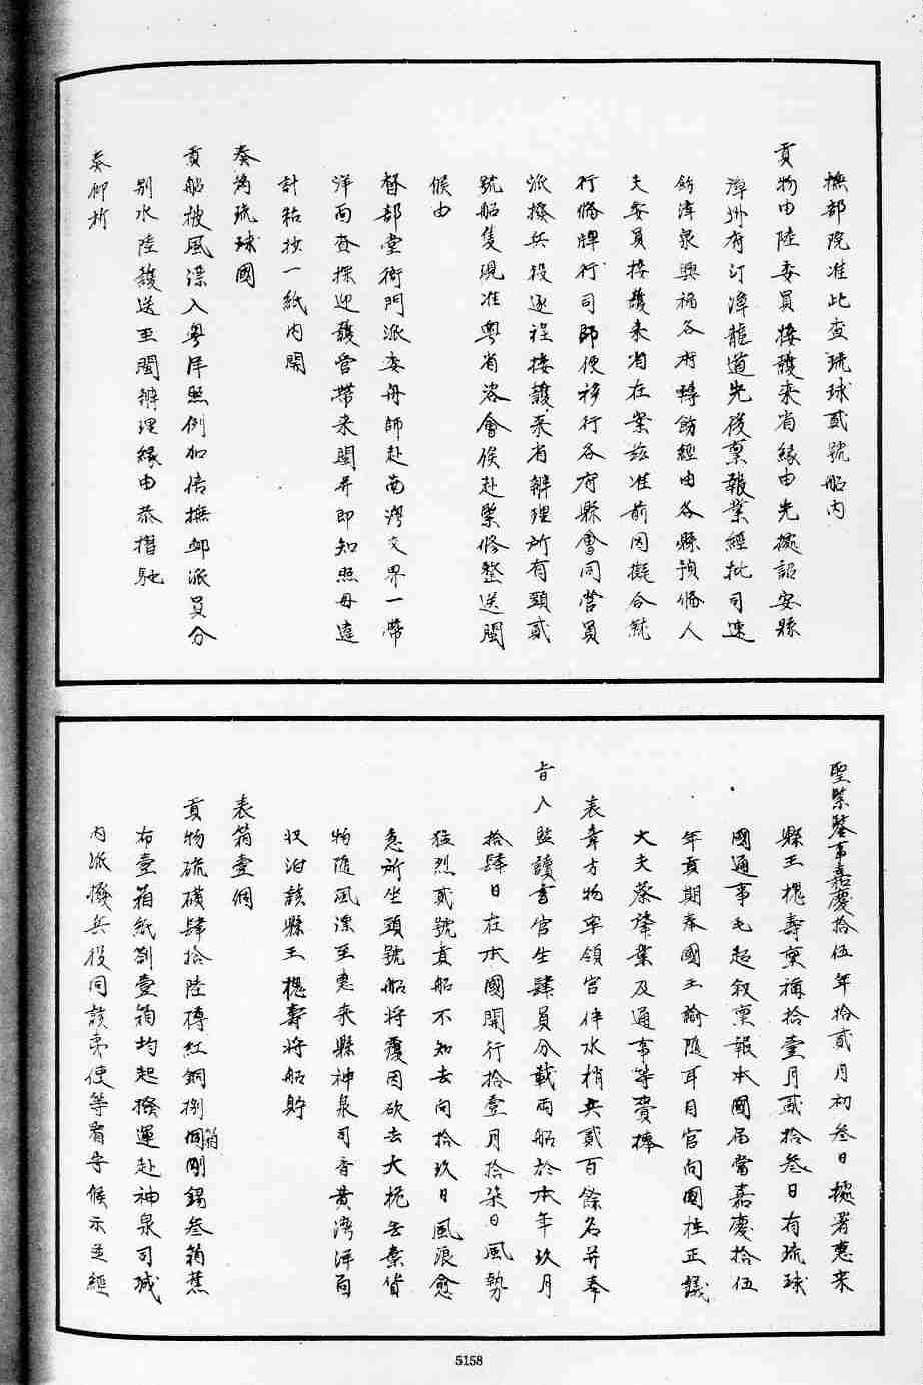 撫部院准此查琉球貳號船內
貢物由陸委員接護來省緣由先據詔安縣
漳州府汀漳龍道先後稟報業經批司速
飭漳泉興福各府轉飭經由各縣預俻人
夫委員接護來省在案茲准前因擬合就
行俻牌行司師便移行各府縣會同營員
派撥兵役逐程接護來省辦理所有頭貳
號船隻現准粵省咨會俟赴緊修整送閩
候由
督部堂衙門派委舟師赴南澳交界一帶
洋面查探迎護管帶來閩并即知照毋違
計粘抄一紙內開
奏為琉球國
貢船被風漂入粵洋照例加倍撫卹派員分
別水陸護送至閩辦理緣由恭摺馳
奏仰祈
聖鑒事嘉慶拾伍年拾貳月初叁日據署惠來
縣王槐壽稟稱拾壹月貳拾叁日有琉球
國通事毛超叙稟報本國屆當嘉慶拾伍
年貢期奉國王諭隨耳目官向國柱正議
大夫蔡肇業及通事等賫捧
表章方物率領官伴水梢共貳百餘名并奉
旨入監讀書官生肆員分載兩船於本年玖月
拾肆日在本國開行拾壹月拾柒日風勢
猛烈貳號貢船不知去向拾玖日風浪愈
急所坐頭號船將覆因砍去大桅丟棄貨
物隨風漂至惠來縣神泉司香黃灣洋面
收泊該縣王槐壽將船貯
表箱壹個
貢物硫磺肆拾陸磚紅銅捌箱剛錫叁箱蕉
布壹箱紙劄壹箱均起撥運赴神泉司城
內派撥兵役同該夷使等看守候示并經
5158